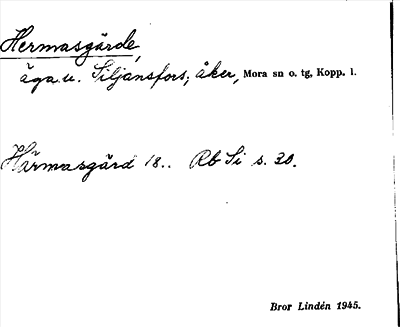 Hermasgärde,
äga u. Siljansfors; åker, Mora sn o. tg, Kopp. l.
Härmasgård 18.. Rb Si s. 20.
Bror Lindén 1945.